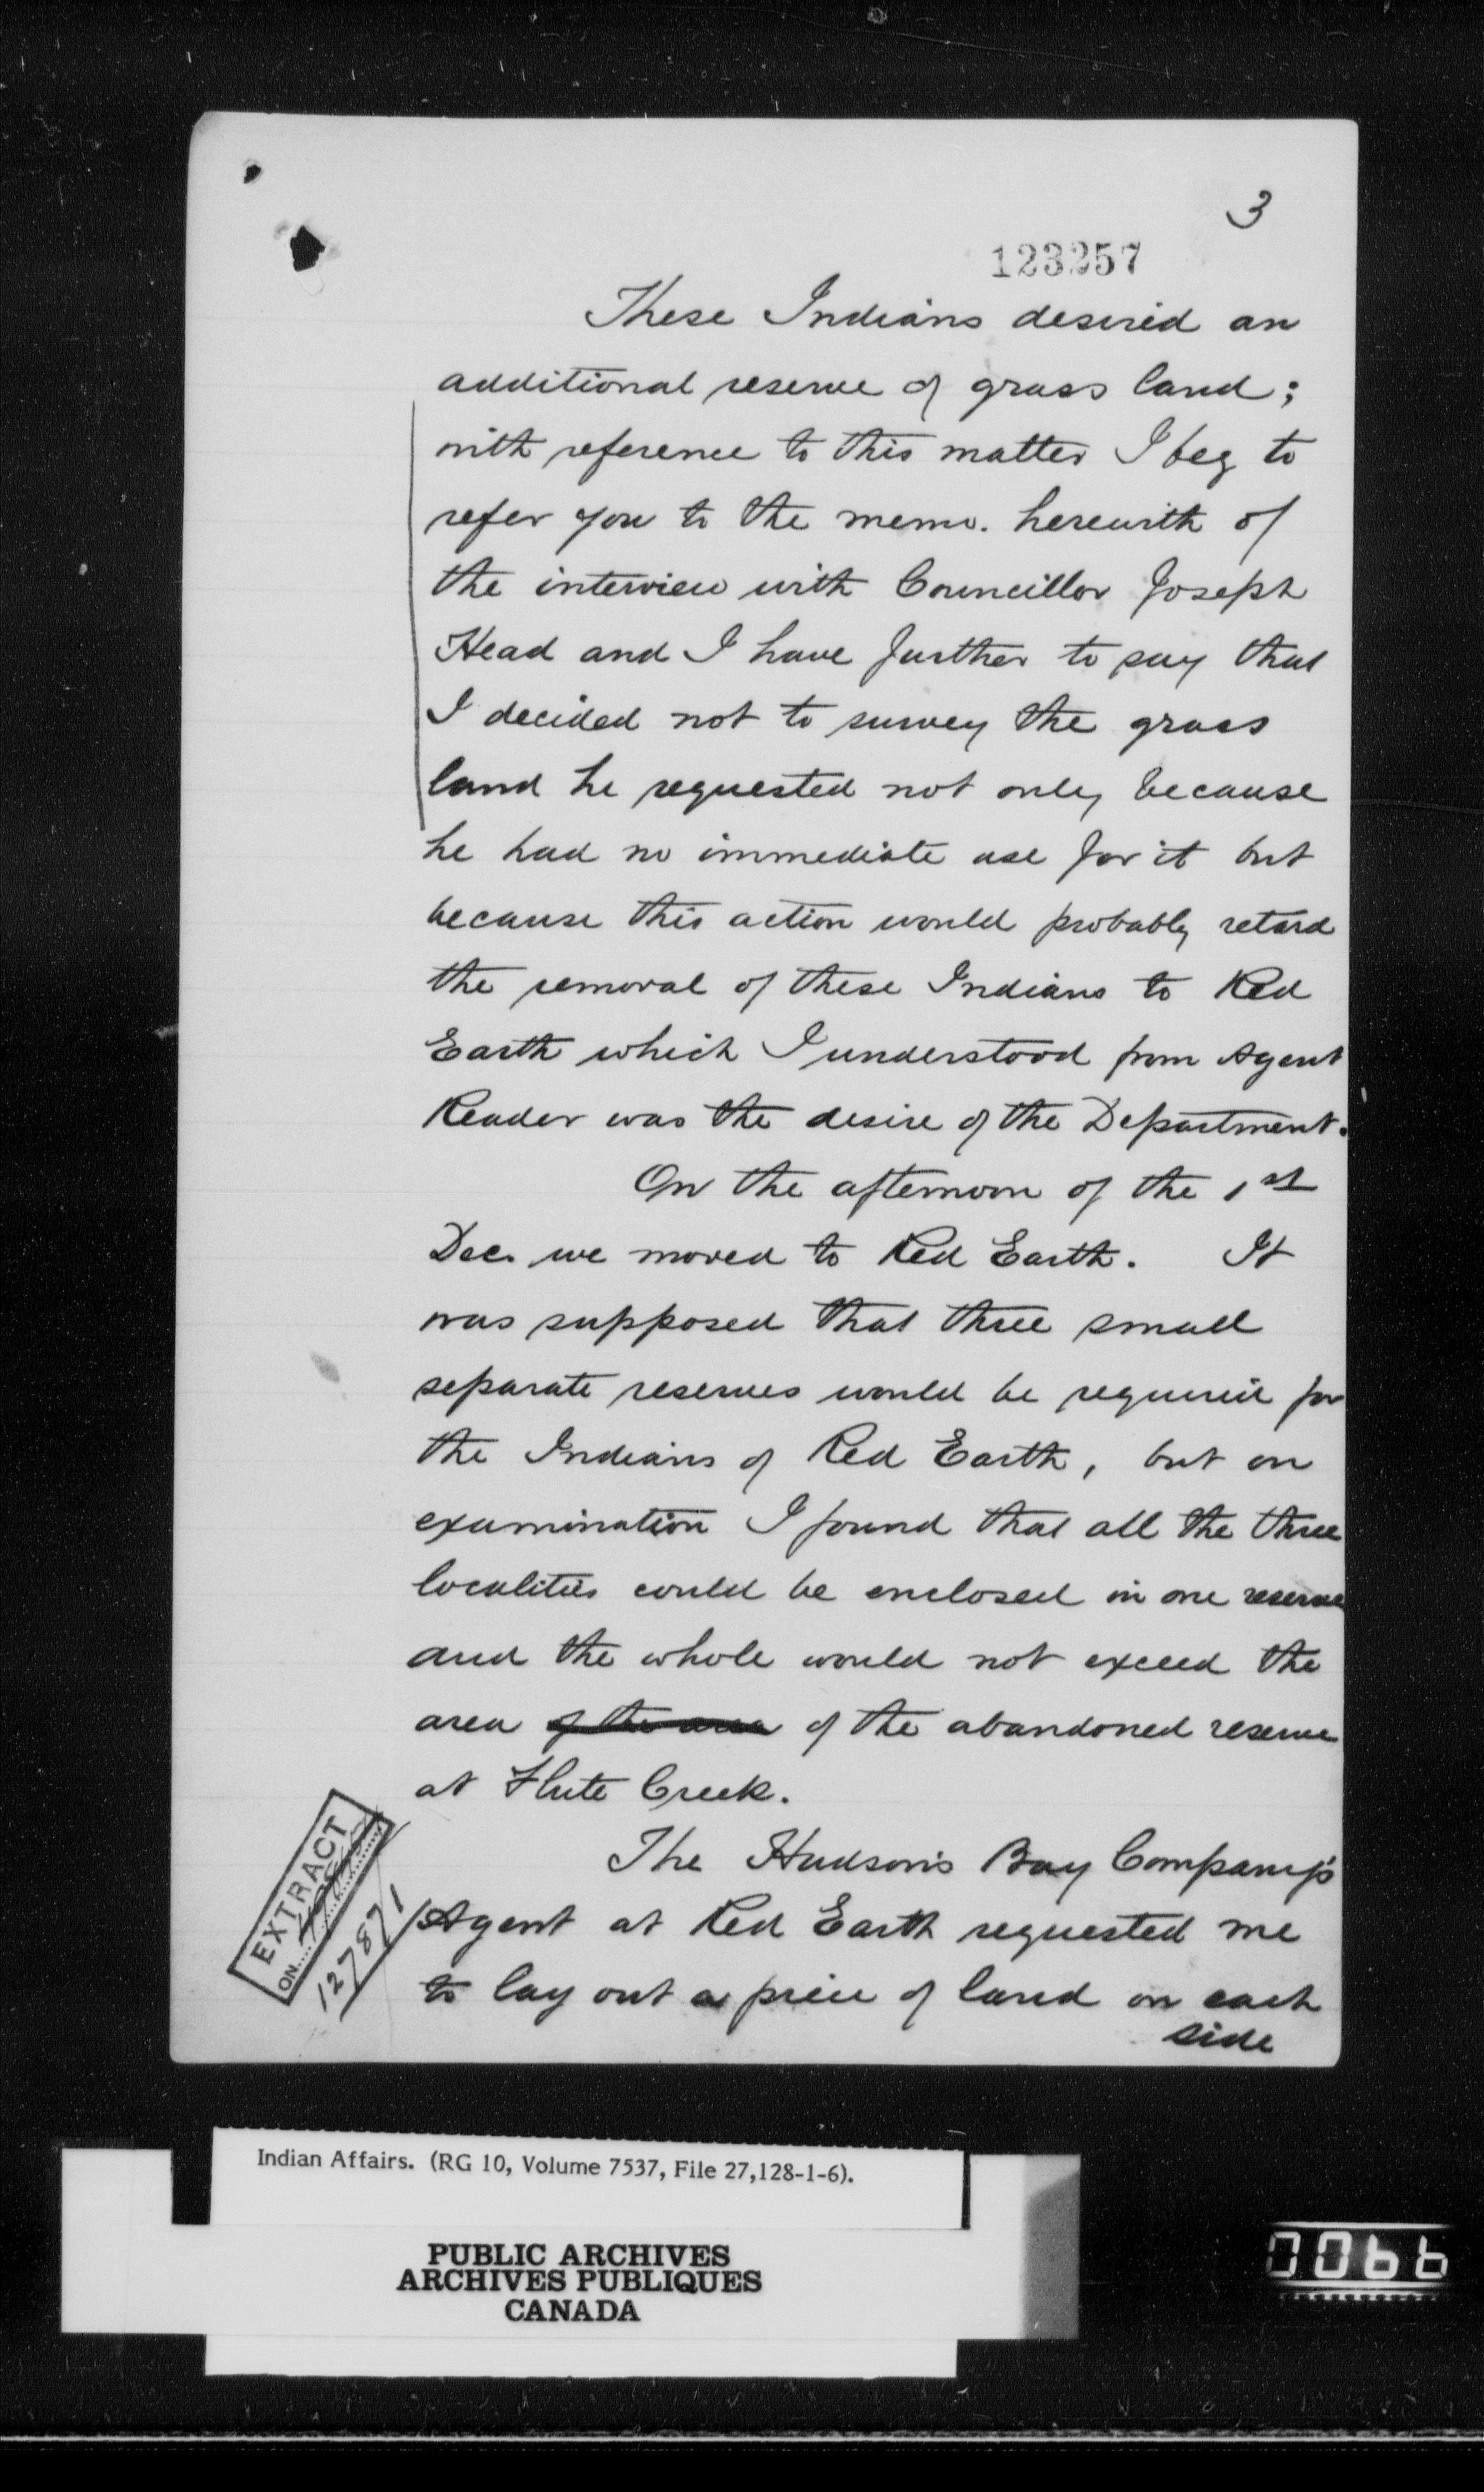 3
123257
These Indians desired an
additional reserve of grass land;
with reference to this matter I beg to
refer you to the memo. herewith of
the interview with Councillor Joseph
Head and I have further to say that
I decided not to survey the grass
land he requested not only because
he had no immediate use for it but
because this action would probably retard
the removal of these Indians to Red
Earth which I understood from Agent
Reader was the desire of the Department.
On the afternoon of the 1st
Dec. we moved to Red Earth. It
was supposed that three small
separate reserves would be required for
the Indians of Red Earth, but on
examination I found that all the three
localities could be enclosed in one reserve
and the whole would not exceed the
area of the area of the abandoned reserve
at Flute Creek.
The Hudson's Bay Company's
Agent at Red Earth requested me
to lay out a piece of land on each
side
EXTRACT
ON
127871
Indian Affairs. (RG 10, Volume 7537, File 27,128-1-6).
PUBLIC ARCHIVES
ARCHIVES PUBLIQUES
CANADA
0066